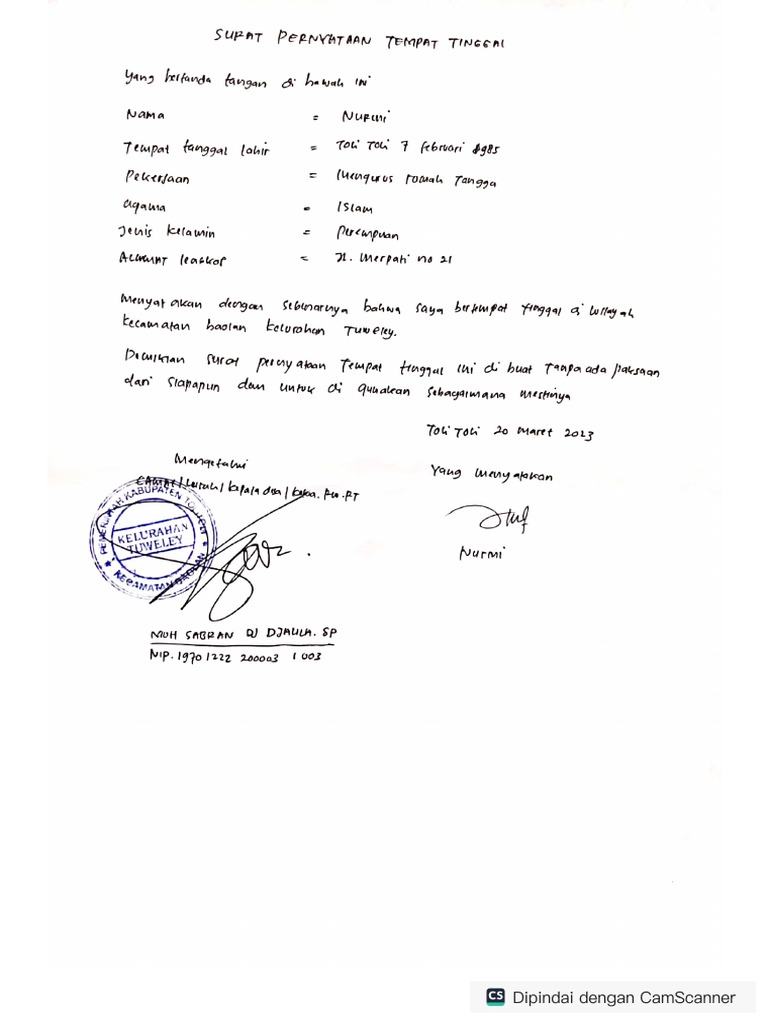 SURAT PERNYATAAN TEMPAT TINGGAL
Yang bertanda tangan di bawah ini
Nama = Nurmi
Tempat tanggal lahir = Toli Toli 7 februari 1985
Pekerjaan = Mengurus rumah Tangga
Agama = Islam
Jenis kelamin = Perempuan
Alamat lengkap = Jl. Merpati no 21
Menyatakan dengan sebenarnya bahwa saya bertempat tinggal di wilayah
kecamatan baolan kelurahan Tuweley.
Demikian surat pernyataan tempat tinggal ini di buat Tanpa ada paksaan
dari siapapun dan untuk di gunakan sebagaimana mestinya
Toli Toli 20 Maret 2023
Mengetahui
Yang menyatakan
CAMAT / Lurah / kepala desa / ketua. RW. RT
PEMERINTAH KABUPATEN TOLITOLI
KELURAHAN
TUWELEY
KECAMATAN BAOLAN
Nurmi
MOH SABRAN DJ DJALILA. SP
NIP. 19701222 200003 1 003
CS Dipindai dengan CamScanner